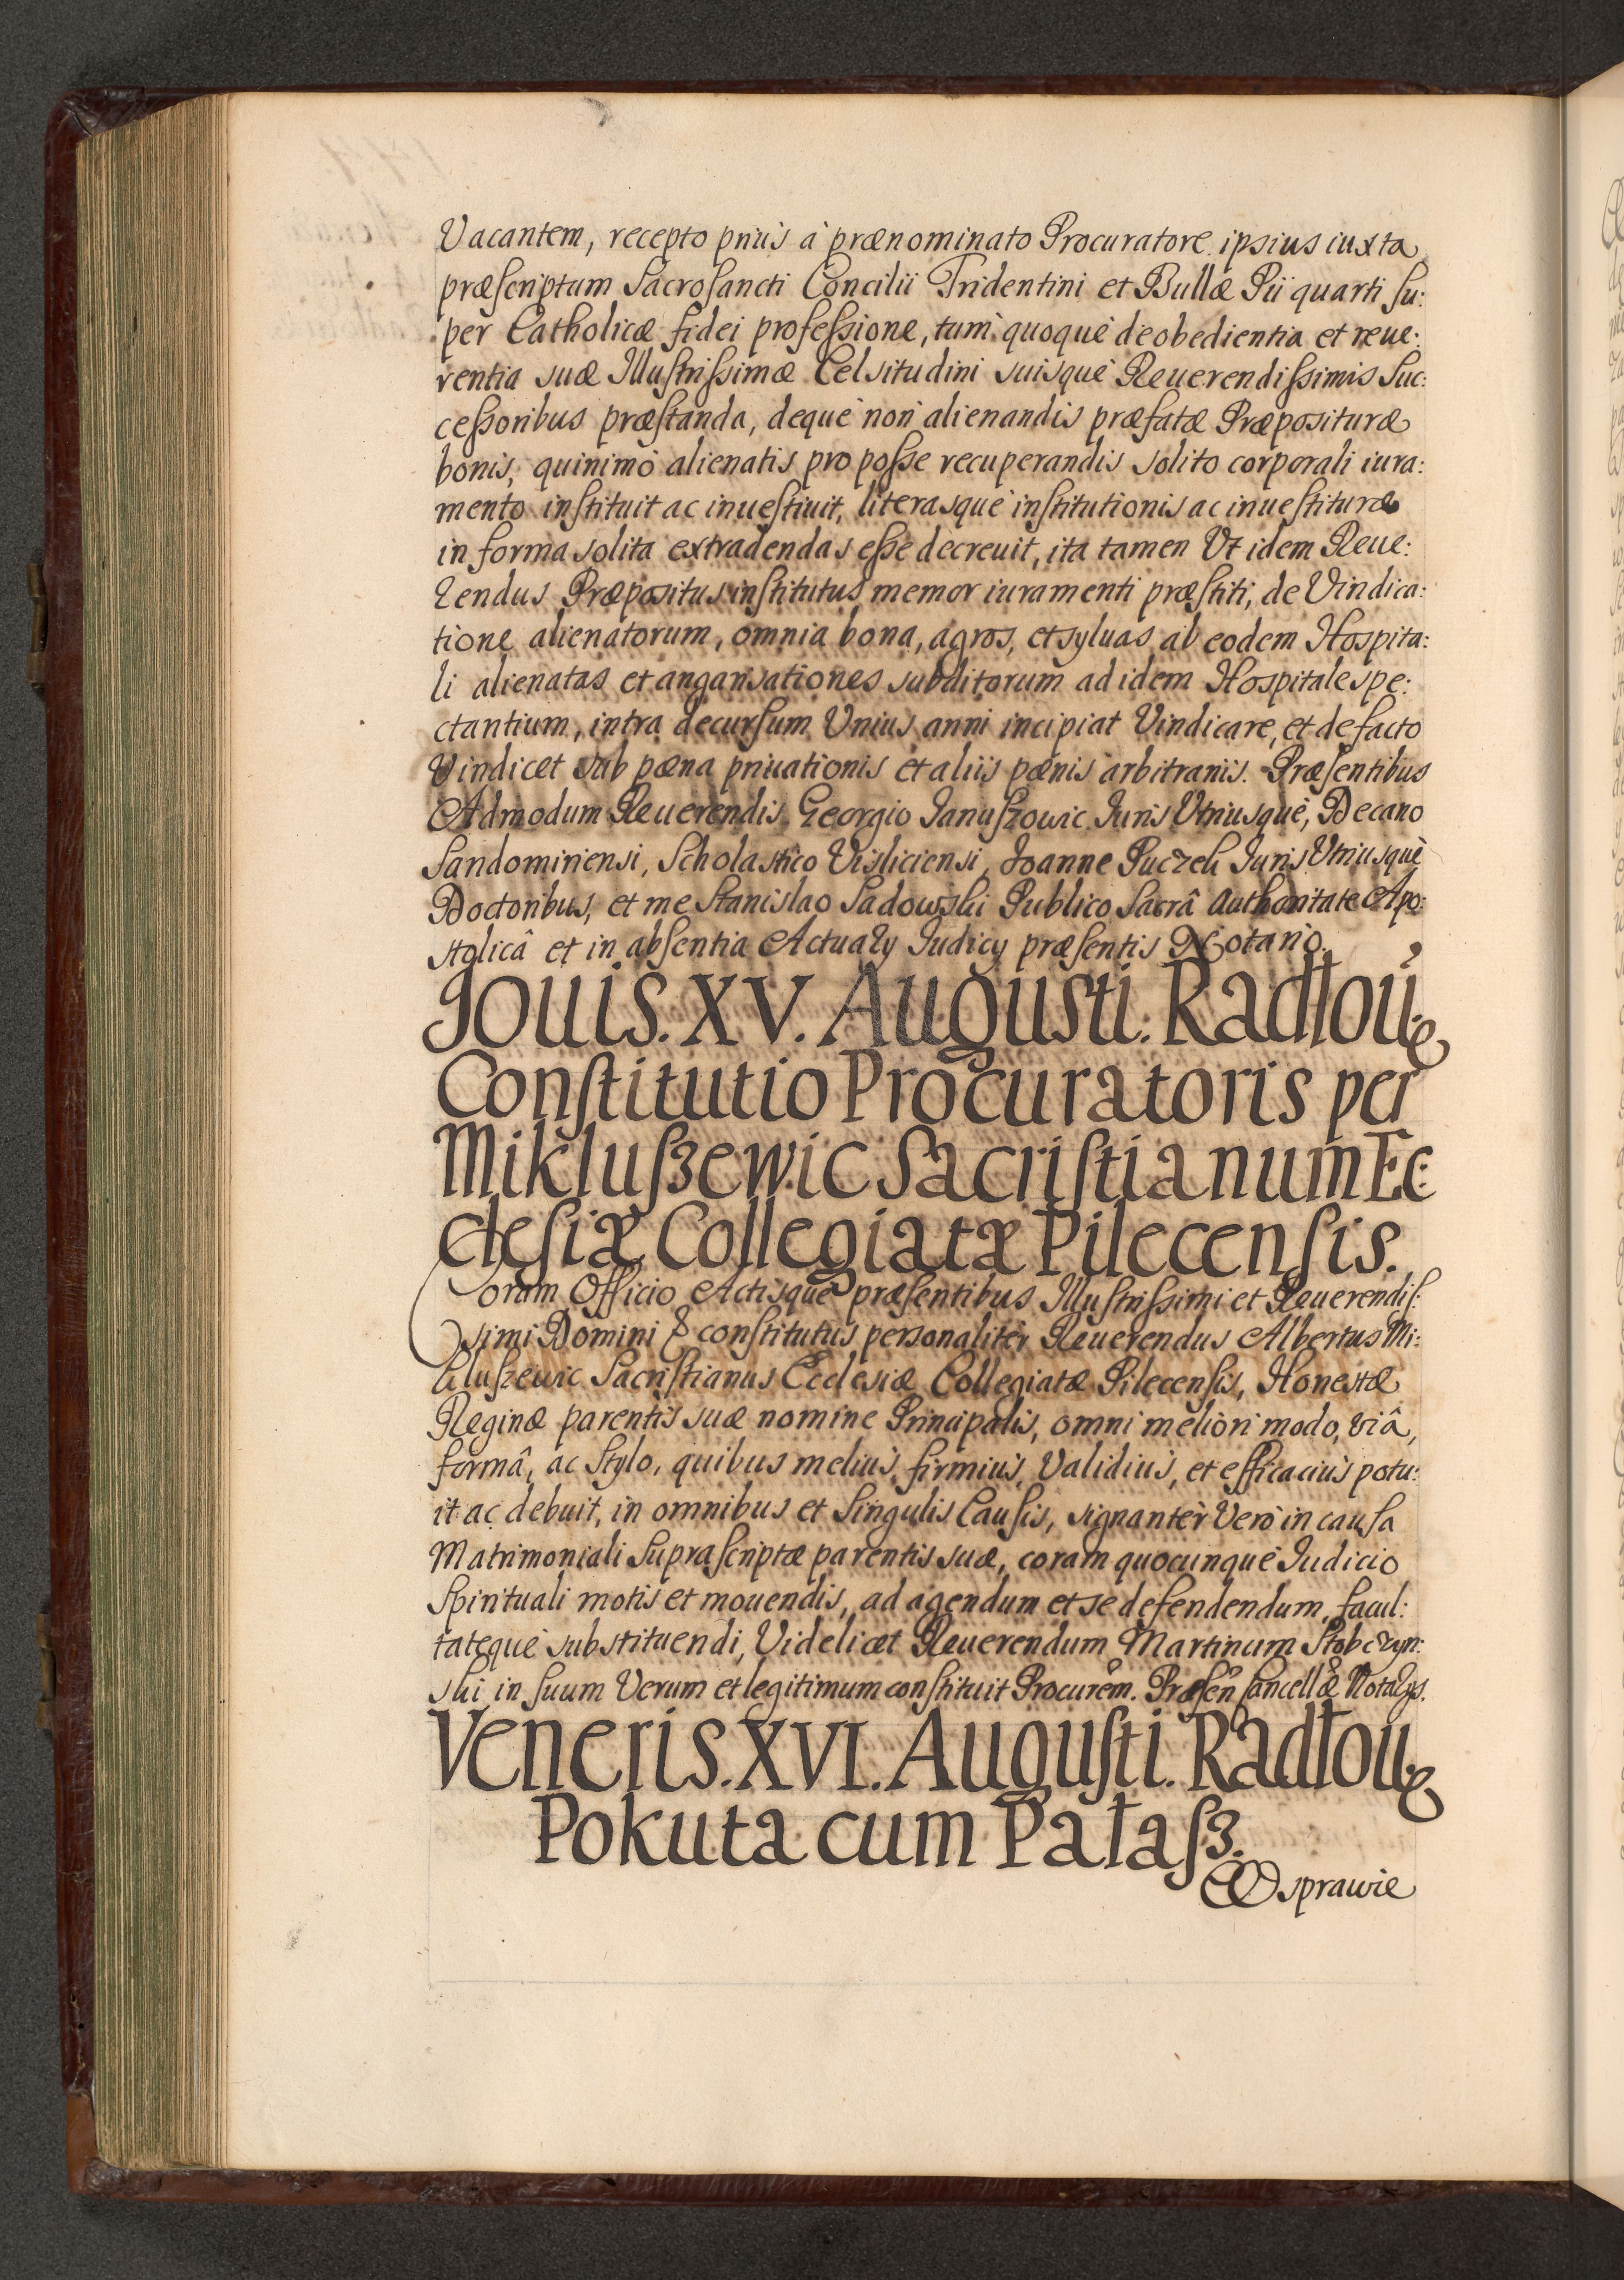 Vacantem, recepto prius à prænominato Procuratore ipsius iuxta
præscriptum Sacrosancti Concilii Tridentini et Bullæ Pii quarti su:
per Catholicæ fidei professione, tum quoquè de obedientia et reue:
rentia suæ Illustrissimæ Celsitudini suisquè Reuerendissimis Suc:
cessoribus præstanda, dequè non alienandis præfatæ Præposituræ
bonis, quinimò alienatis pro posse recuperandis solito corporali iura:
mento instituit ac inuestiuit, literasquè institutionis ac inuestituræ
in forma solita extradendas esse decreuit, ita tamen Vt idem Reue:
rendus Præpositus institutus memor iuramenti præstiti, de Vindica:
tione alienatorum, omnia bona, agros, et syluas ab eodem Hospita:
li alienatas et angarisationes subditorum ad idem Hospitale spe:
ctantium, intra decursum Vnius anni incipiat Vindicare, et de facto
Vindicet sub pæna priuationis et aliis pænis arbitrariis. Præsentibus
Admodum Reuerendis Georgio Januszowic Juris Vtriusquè, Decano
Sandomiriensi, Scholastico Visliciensi, Joanne Puczek Juris Vtriusquè
Doctoribus, et me Stanislao Sadowski Publico Sacrâ Authoritate Apo:
stolicâ et in absentia Actuary Judicy præsentis Notario.
Jouis. XV. Augusti. Radłouiæ
Constitutio Procuratoris per
Mikluszewic Sacristianum Ec:
clesiæ Collegiatæ Pilecensis.
Coram Officio Actisquè præsentibus Illustrissimi et Reuerendis:
simi Domini & constitutus personalitèr Reuerendus Albertus Mi:
kluszewic Sacristianus Ecclesiæ Collegiatæ Pilecensis, Honestæ
Reginæ parentis suæ nomine Principalis, omni meliori modo, viâ,
formâ, ac Stylo, quibus melius, firmius, Validius, et efficacius potu:
it ac debuit, in omnibus et Singulis Causis, signantèr Verò in causa
Matrimoniali Suprascriptæ parentis suæ, coram quocunquè Judicio
Spirituali motis et mouendis, ad agendum et se defendendum, facul:
tatequè substituendi, Videlicet Reuerendum Martinum Stobczyn:
ski in suum Verum et legitimum constituit Procurem. Præsen Cancellæ Notarys.
Veneris. XVI. Augusti. Radłouiæ
Pokuta cum Pałasz.
W sprawie